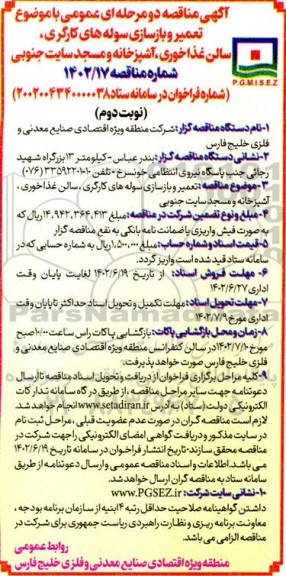 آگهی مناقصه دو مرحله ای عمومی با موضوع
تعمیر و بازسازی سوله های کارگری،
سالن غذاخوری، آشپزخانه و مسجد سایت جنوبی
شماره مناقصه ۱۴۰۲/۱۷
(شماره فراخوان در سامانه ستاد ۲۰۰۲۰۰۴۳۴۰۰۰۰۰۳۸)
(نوبت دوم)
P.G.M.I.S.E.Z
۱-نام دستگاه مناقصه گزار: شرکت منطقه ویژه اقتصادی صنایع معدنی و
فلزی خلیج فارس
۲-نشانی دستگاه مناقصه گزار: بندرعباس-کیلومتر ۱۳ بزرگراه شهید
رجائی جنب پاسگاه نیروی انتظامی خونسرخ-تلفن ۲۰-۳۳۵۹۲۲۰۱ (۰۷۶)
۳-موضوع مناقصه: تعمیر و بازسازی سوله های کارگری، سالن غذاخوری،
آشپزخانه و مسجد سایت جنوبی
۴-مبلغ و نوع تضمین شرکت در مناقصه: مبلغ ۱۴،۹۴۲،۳۶۴،۴۱۳ ریال که
به صورت فیش واریزی یا ضمانت نامه بانکی به نفع مناقصه گزار
۵-قیمت اسناد و شماره حساب: مبلغ ۱،۵۰۰،۰۰۰ ریال به شماره حسابی که در
سامانه ستاد قید شده است واریز گردد.
۶- مهلت فروش اسناد: از تاریخ ۱۴۰۲/۶/۱۹ لغایت پایان وقت
اداری ۱۴۰۲/۶/۲۷
۷-مهلت تحویل اسناد: مهلت تکمیل و تحویل اسناد حداکثر تا پایان وقت
اداری مورخ ۱۴۰۲/۷/۹
۸-زمان و محل بازگشایی پاکات: بازگشایی پاکات راس ساعت ۱۰:۰۰ صبح
مورخ ۱۴۰۲/۷/۱۰ در سالن کنفرانس منطقه ویژه اقتصادی صنایع معدنی و
فلزی خلیج فارس صورت خواهد پذیرفت.
۹-کلیه مراحل برگزاری فراخوان از دریافت و تحویل اسناد مناقصه تا ارسال
دعوتنامه جهت سایر مراحل مناقصه، از طریق درگاه سامانه تدارکات
الکترونیکی دولت (ستاد) به آدرس www.setadiran.ir انجام خواهد شد.
لازم است مناقصه گران در صورت عدم عضویت قبلی، مراحل ثبت نام
در سایت مذکور و دریافت گواهی امضای الکترونیکی را جهت شرکت در
مناقصه محقق سازند. تاریخ انتشار فراخوان در سامانه تاریخ ۱۴۰۲/۶/۱۹
می باشد. اطلاعات و اسناد مناقصه عمومی و ارسال دعوتنامه از طریق
سامانه ستاد به مناقصه گران ارسال خواهد شد.
۱۰-نشانی سایت شرکت: www.PGSEZ.ir
داشتن گواهینامه صلاحیت حداقل رتبه ۴ ابنیه از سازمان برنامه بودجه،
معاونت برنامه ریزی و نظارت راهبردی ریاست جمهوری برای شرکت در
مناقصه الزامی می باشد.
روابط عمومی
منطقه ویژه اقتصادی صنایع معدنی و فلزی خلیج فارس